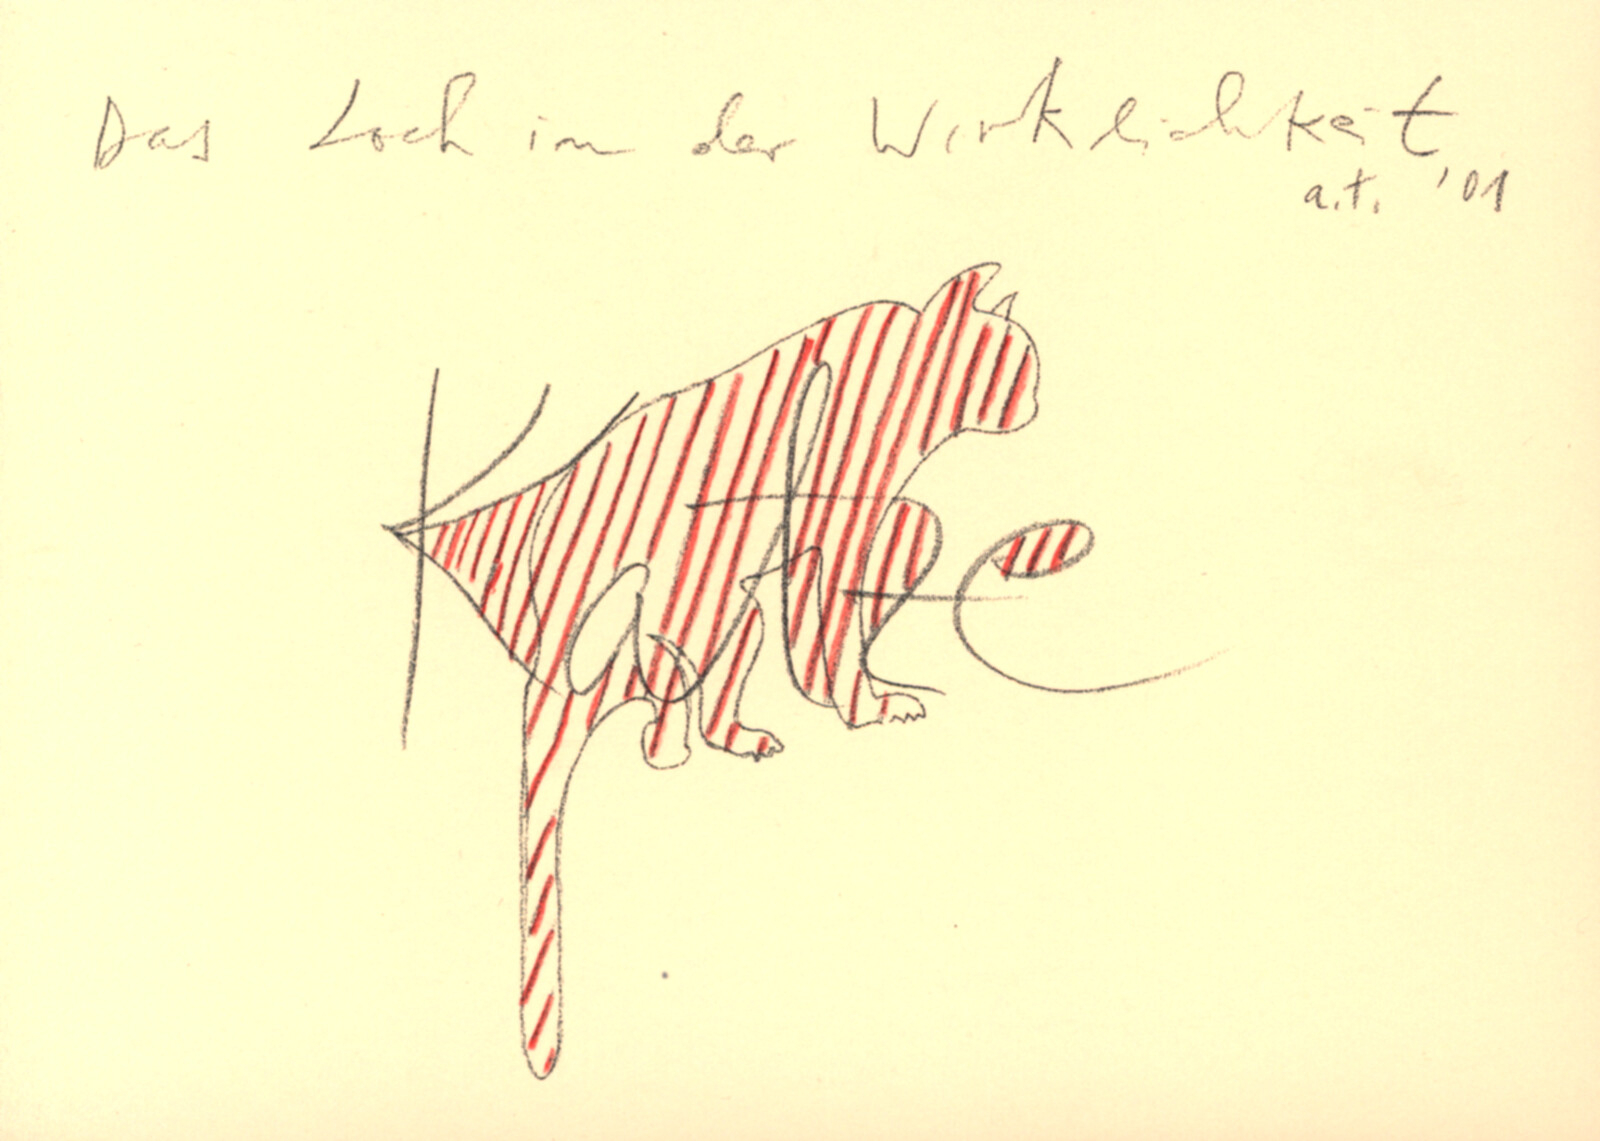 Das Loch in der Wirklichkeit
a.t. '01
Katze